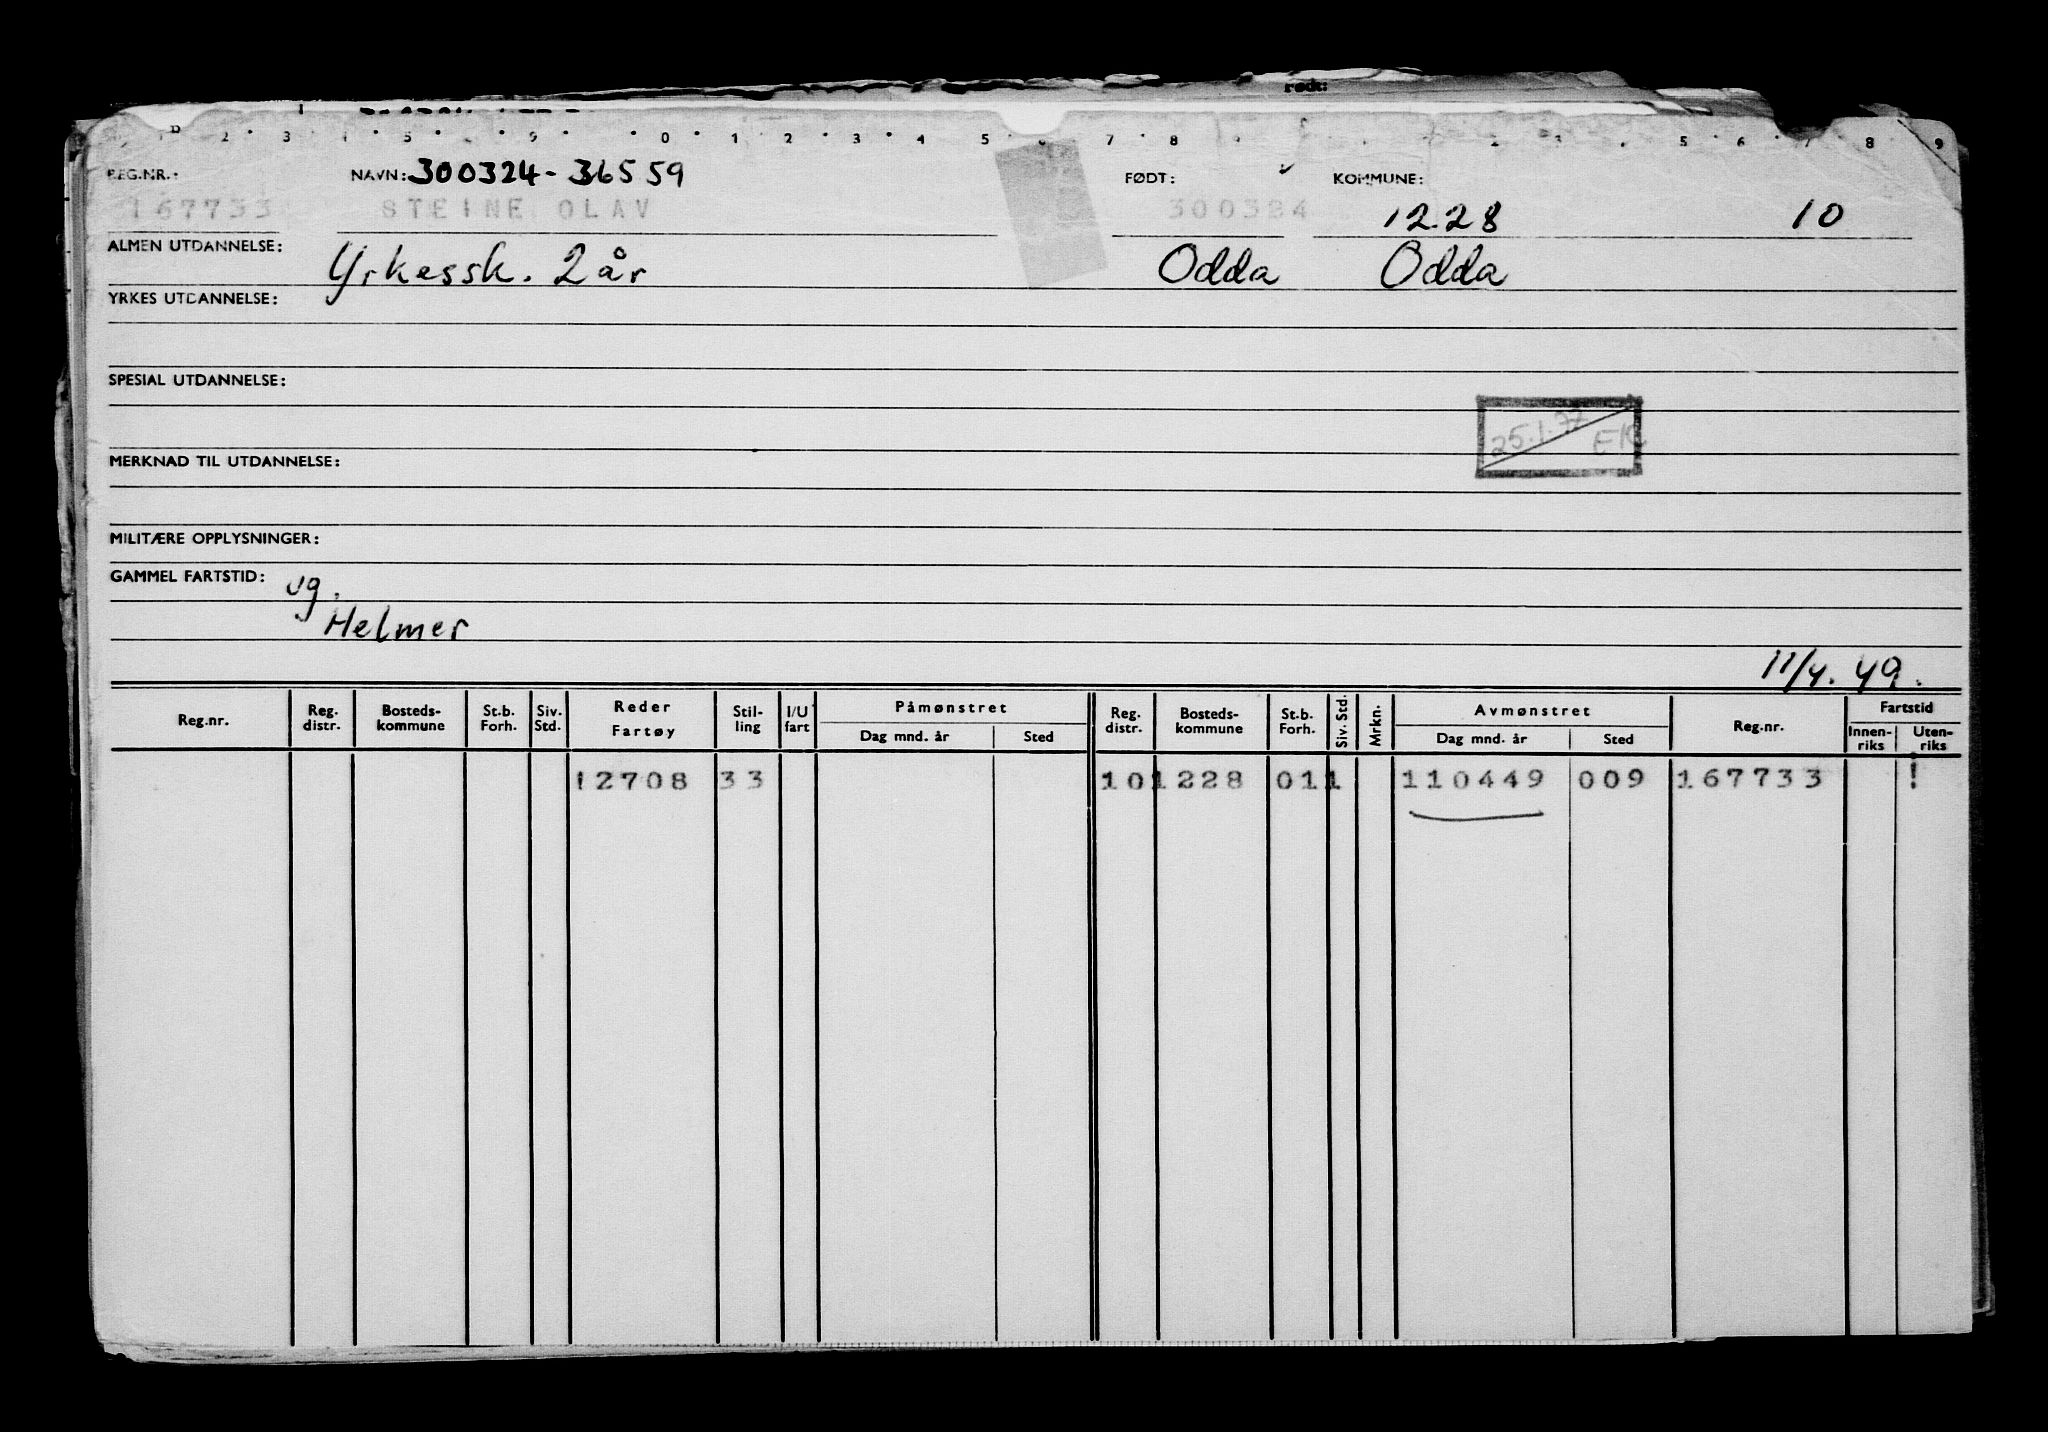 født:
REG.NR.: NAVN: 300324-36559 FØDT: KOMMUNE:
167733 STEINE OLAV 300324 12.28 10
ALMEN UTDANNELSE: Yrkessk. 2 år Odda Odda
YRKES UTDANNELSE:
SPESIAL UTDANNELSE:
25.1.77 EK
MERKNAD TIL UTDANNELSE:
MILITÆRE OPPLYSNINGER:
GAMMEL FARTSTID: ug.
Helmer
11/4. 49.
Reg.nr. Reg. distr. Bosteds- kommune St.b. Forh. Siv. Std. Reder Fartøy Stil- ling I/U fart Påmønstret Dag mnd. år Sted Reg. distr. Bosteds- kommune St.b. Forh. Siv. Std. Mrkn. Avmønstret Dag mnd. år Sted Reg.nr. Fartstid Innen- riks Uten- riks
12708 33 101228 011 110449 009 167733